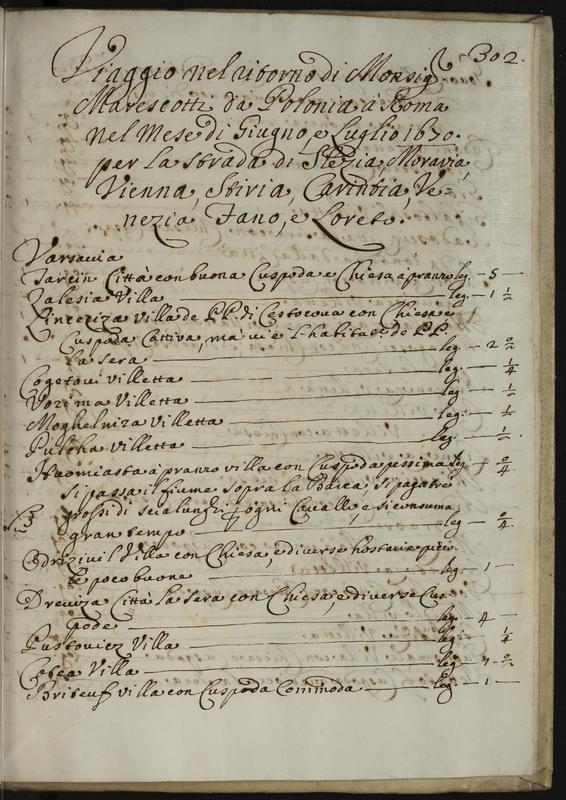 302.
Viaggio nel ritorno di Monsig.r
Marescotti da Polonia à Roma
nel Mese di Giugno, e Luglio 1670.
per la strada di Slezia, Moravia,
Vienna, Stiria, Carintia, Ve=
nezia Fano, e Loreto.
Varsavia
Tarcin Città con buona Cuspoda e Chiesa à pranzo leg. - 5 -
Jalesia Villa leg. - 1 1/2
Villa de PP. di Cestocova con Chiesa e
Cuspoda Cattiva, mà vi è l'habitat.e de PP.
la sera leg. - 2
Cogetovi Villetta leg. 1/4
Vozima Villetta leg. 1/2
Moghelniza Villetta leg.
Pulcha Villetta leg.
à pranzo villa con Cuspoda pessima leg.
Si passa il fiume sopra la Barca, si paga tre
grossi di Seialunghi ogni Cavallo, e si consuma
gran tempo leg.
Villa con Chiesa, e diverse hostarie picco=
le poco buone leg. - 1 -
Dreviza Città la sera con Chiesa, e diverse Cus=
pode leg. - 4 -
Villa leg. 1/4
Villa leg.
Villa con Cuspoda Commoda leg. - 1 -